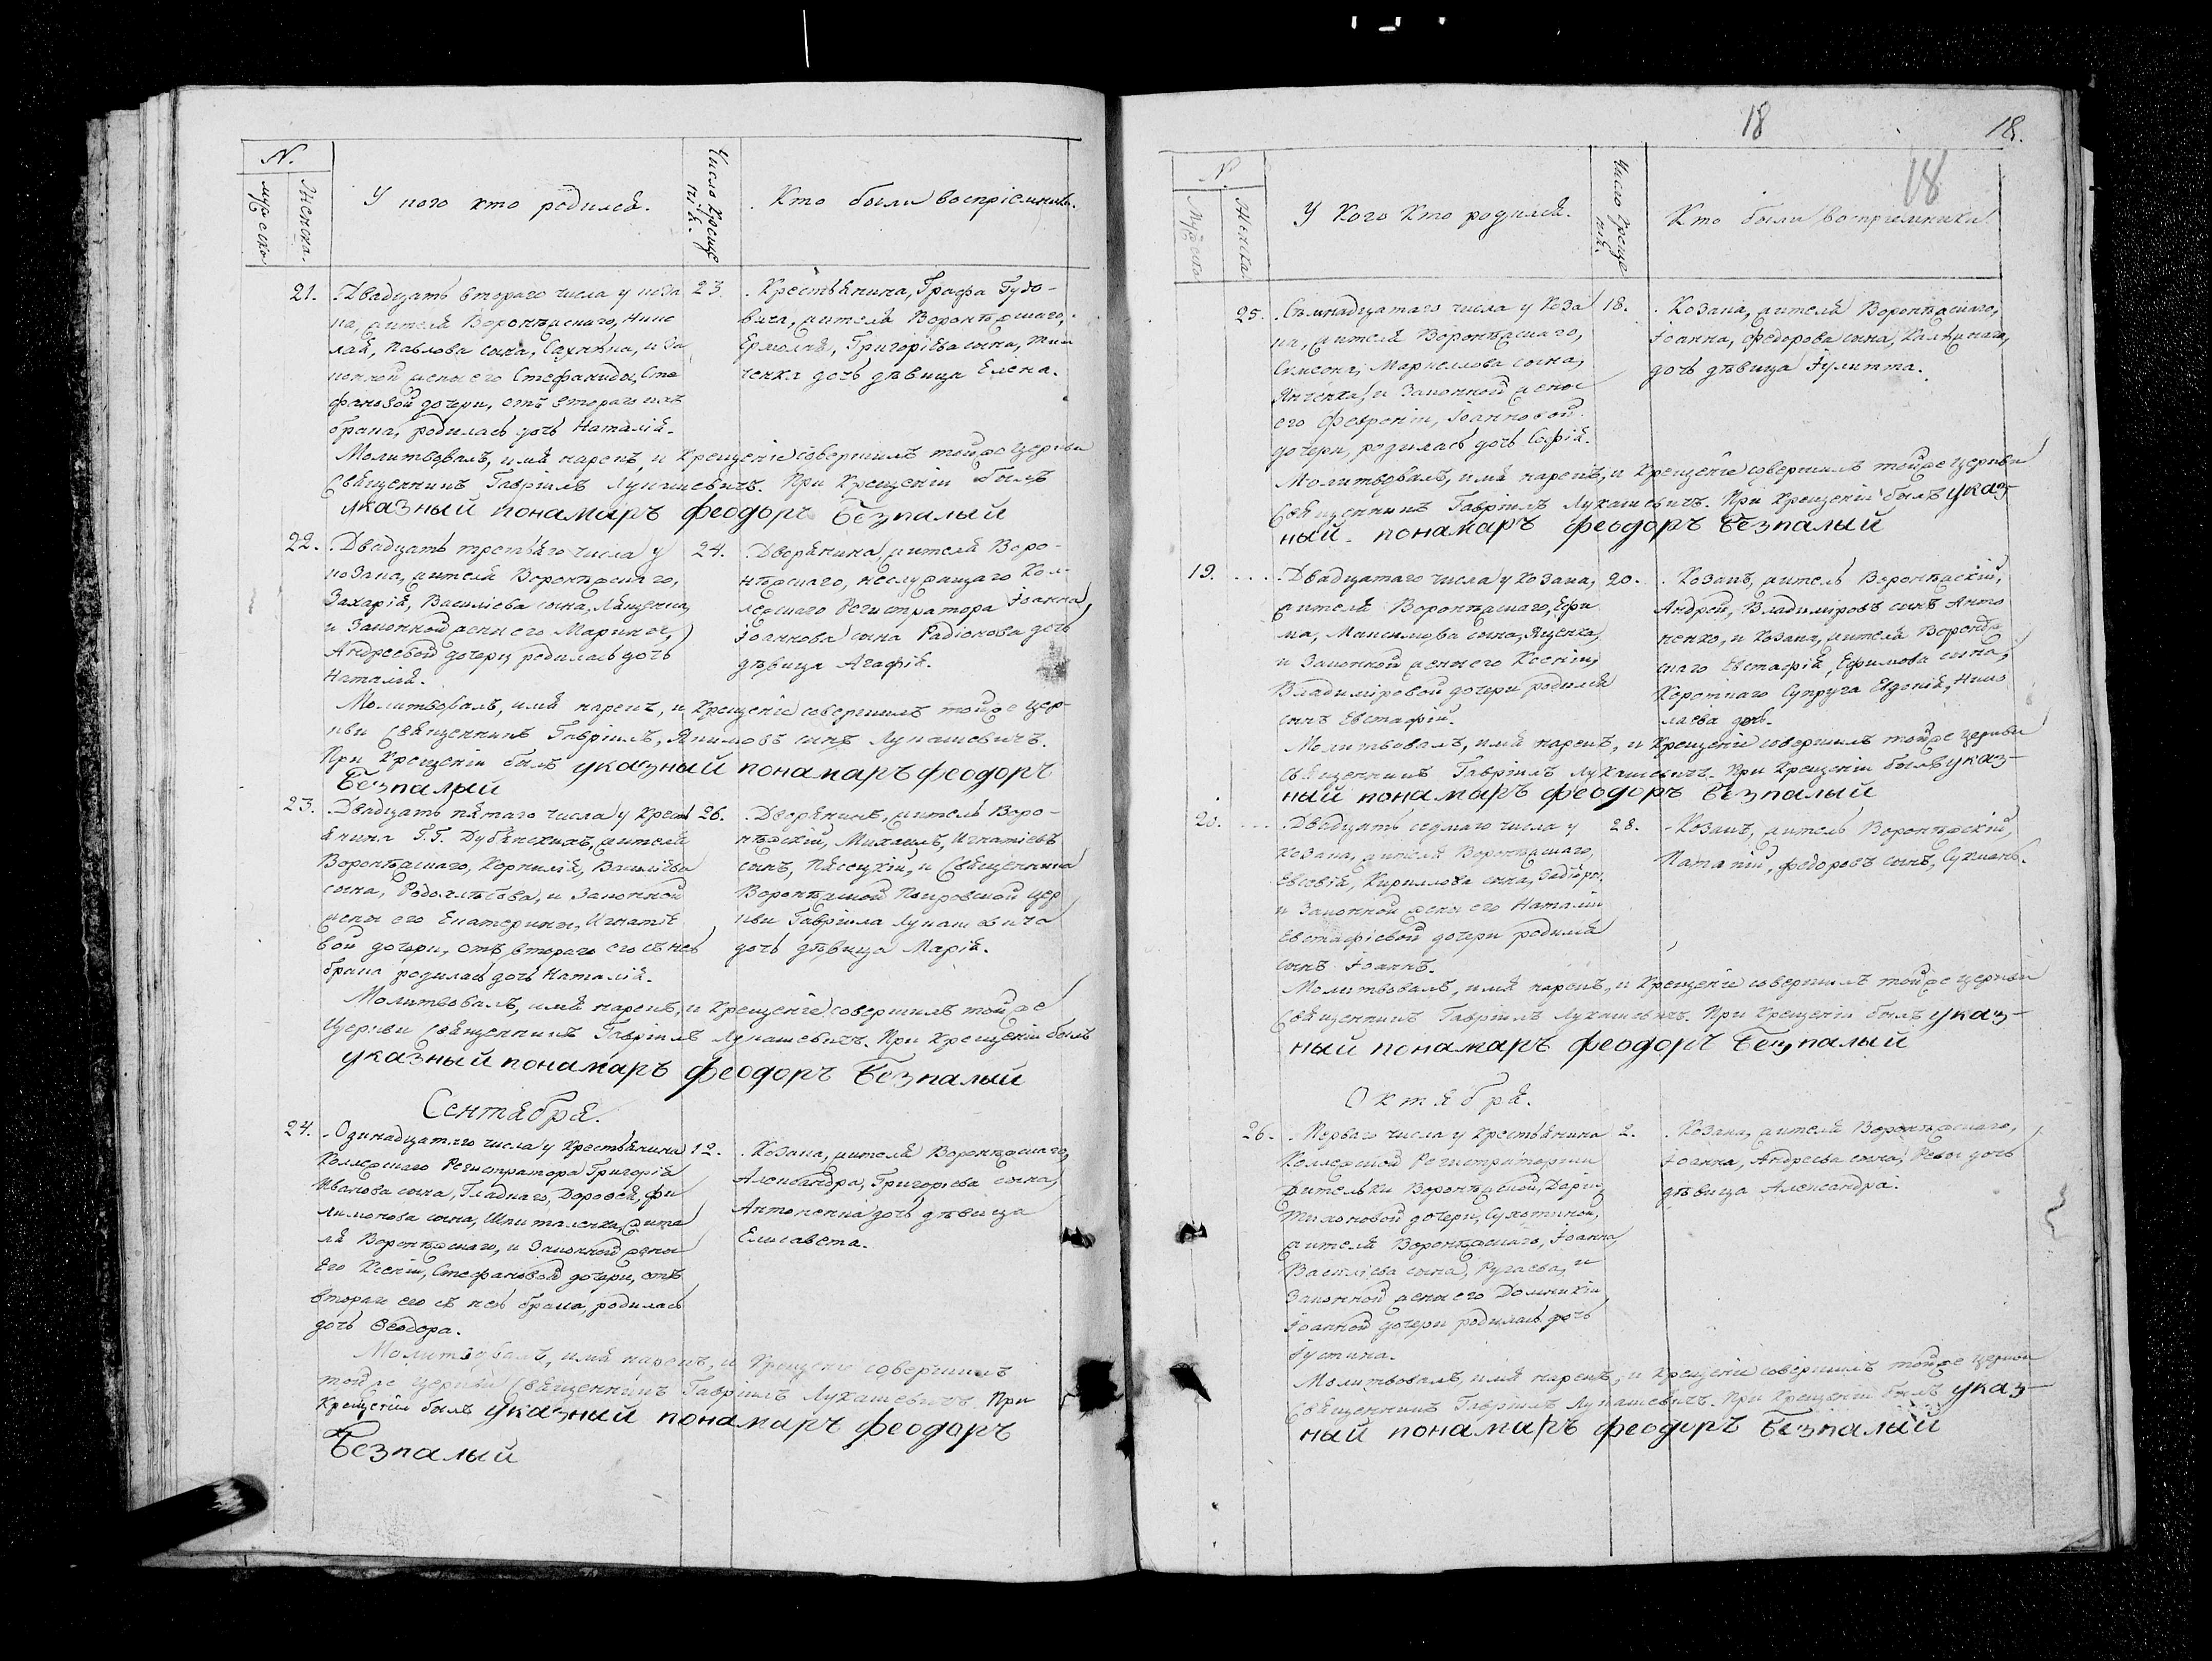 N.
мужеска
Женска.
У кого кто родился.
Число Креще
нія.
Кто были воспріемники.
21. Двадцать втораго числа у коза
ка, жителя Воронѣжскаго, Нико
лая, Павлова сына, Сахнѣна, и за
конной жены его Стефаниды, Сте
фановой дочери, отъ втораго ихъ
брака, родилась дочь Наталія.
23. Крестьянина, Графа Гудо-
вича, жителя Воронѣжскаго,
Ермолая, Григоріева сына,
ченка дочь дѣвица Елена.
Молитвовалъ, имя нарекъ, и Крещеніе совершилъ тойже Церкви
Священникъ Гавріилъ Лукашевичъ. При Крещеніи былъ
указный понамаръ феодоръ Безпалый
22. Двадцать третьяго числа у
козака, жителя Воронѣжскаго,
Захарія, Василіева сына, Лященка,
и Законной жены его Марины,
Андреевой дочери родилась дочь
Наталія.
24. Дворянина, жителя Воро-
нѣжскаго, неслужащаго Кол-
лежскаго Регистратора Іоанна,
Іоаннова сына Радіонова дочь
дѣвица Агафія.
Молитвовалъ, имя нарекъ, и Крещеніе совершилъ тойже Цер-
кви Священникъ Гавріилъ, Якимовъ сынъ Лукашевичъ.
При Крещеніи былъ указный понамаръ феодоръ
Безпалый
23. Двадцать пятаго числа у Крестъ
янина Г.Г. Дубянскихъ, жителя
Воронѣжскаго, Корнилія, Василіева
сына, и Законной
жены его Екатерины, Игнатіе
вой дочери, отъ втораго его съ нею
брака родилась дочь Наталія.
26. Дворянинъ, житель Воро-
нѣжскій, Михаилъ, Игнатіевъ
сынъ, Пясецкій, и Священника
Воронѣжской Покровской Цер
кви Гавріила Лукашевича
дочь дѣвица Марія.
Молитвовалъ, имя нарекъ, и Крещеніе совершилъ тойже
Церкви Священникъ Гавріилъ Лукашевичъ. При Крещеніи былъ
указный понамаръ феодоръ Безпалый
Сентября.
24. Одинадцатаго числа у Крестьянина
Колежскаго Регистратора Григорія
Иванова сына, Гладкаго, Дорофея, Фи
лимонова сына, Шпиталенка, жите
ля Воронѣжскаго, и Законной жены
Его Ксеніи, Стефановой дочери, отъ
втораго его съ нею брака, родилась
дочь Феодора.
12. Козака, жителя Воронѣжскаго,
Александра, Григоріева сына,
Антоненка дочь дѣвица
Елисавета.
Молитвовалъ, имя нарекъ, и Крещеніе совершилъ
тойже Церкви Священникъ Гавріилъ Лукашевичъ. При
Крещеніи былъ указный понамаръ феодоръ
Безпалый
18
18.
18
N.
Мужеска
Женска
У Кого Кто родился.
Число Креще
нія.
Кто были воспріемники
25. Семнадцатаго числа у Коза
ка, жителя Воронѣжскаго,
Симеона, Маркелова сына,
Янченка, и Законной жены
его Февроніи, Іоанновой
дочери, родилась дочь Софія.
18. Козака, жителя Воронѣжскаго,
Іоанна, Федорова сына,
дочь дѣвица Іулитта.
Молитвовалъ, имя нарекъ, и Крещеніе совершилъ тойже Церкви
Священникъ Гавріилъ Лукашевичъ. При Крещеніи былъ указ-
ный понамаръ феодоръ Безпалый
19. Двадцатаго числа у Козака,
жителя Воронѣжскаго, Ефи
ма, Максимова сына, Яценка,
и Законной жены его Ксеніи,
Владиміровой дочери родился
сынъ Евстафій.
20. Козакъ, житель Воронѣжскій,
Андрей, Владиміровъ сынъ Анто
ненко, и Козака, жителя Воронѣж
скаго Евстафія, Ефимова сына,
Короткаго Супруга Евдокія, Нико
лаева дочь.
Молитвовалъ, имя нарекъ, и Крещеніе совершилъ тойже Церкви
Священникъ Гавріилъ Лукашевичъ. При Крещеніи былъ указ-
ный понамаръ феодоръ Безпалый
20. Двадцать седмаго числа у
Козака, жителя Воронѣжскаго,
Евсевія, Кириллова сына,
и Законной жены его Наталіи
Евстафіевой дочери родился
сынъ Іоаннъ.
28. Козакъ, житель Воронѣжскій,
Патапій, Федоровъ сынъ,
Молитвовалъ, имя нарекъ, и Крещеніе совершилъ тойже Церкви
Священникъ Гавріилъ Лукашевичъ. При Крещеніи былъ указ-
ный понамаръ феодоръ Безпалый
Октября.
26. Перваго числа у Крестьянина
Коллежской Регистраторши
жительки Воронѣжской, Дарьи,
Тихоновой дочери, Сухотиной,
жителя Воронѣжскаго, Іоанна,
Василіева сына, Ругаева, и
Законной жены его Домникіи
Іоанной дочери родилась дочь
Іустина.
2. Козака, жителя Воронѣжскаго,
Іоанна, Андреева сына, Ревы дочь
дѣвица Александра.
Молитвовалъ, имя нарекъ, и Крещеніе совершилъ тойже Церкви
Священникъ Гавріилъ Лукашевичъ. При Крещеніи былъ указ-
ный понамаръ феодоръ Безпалый